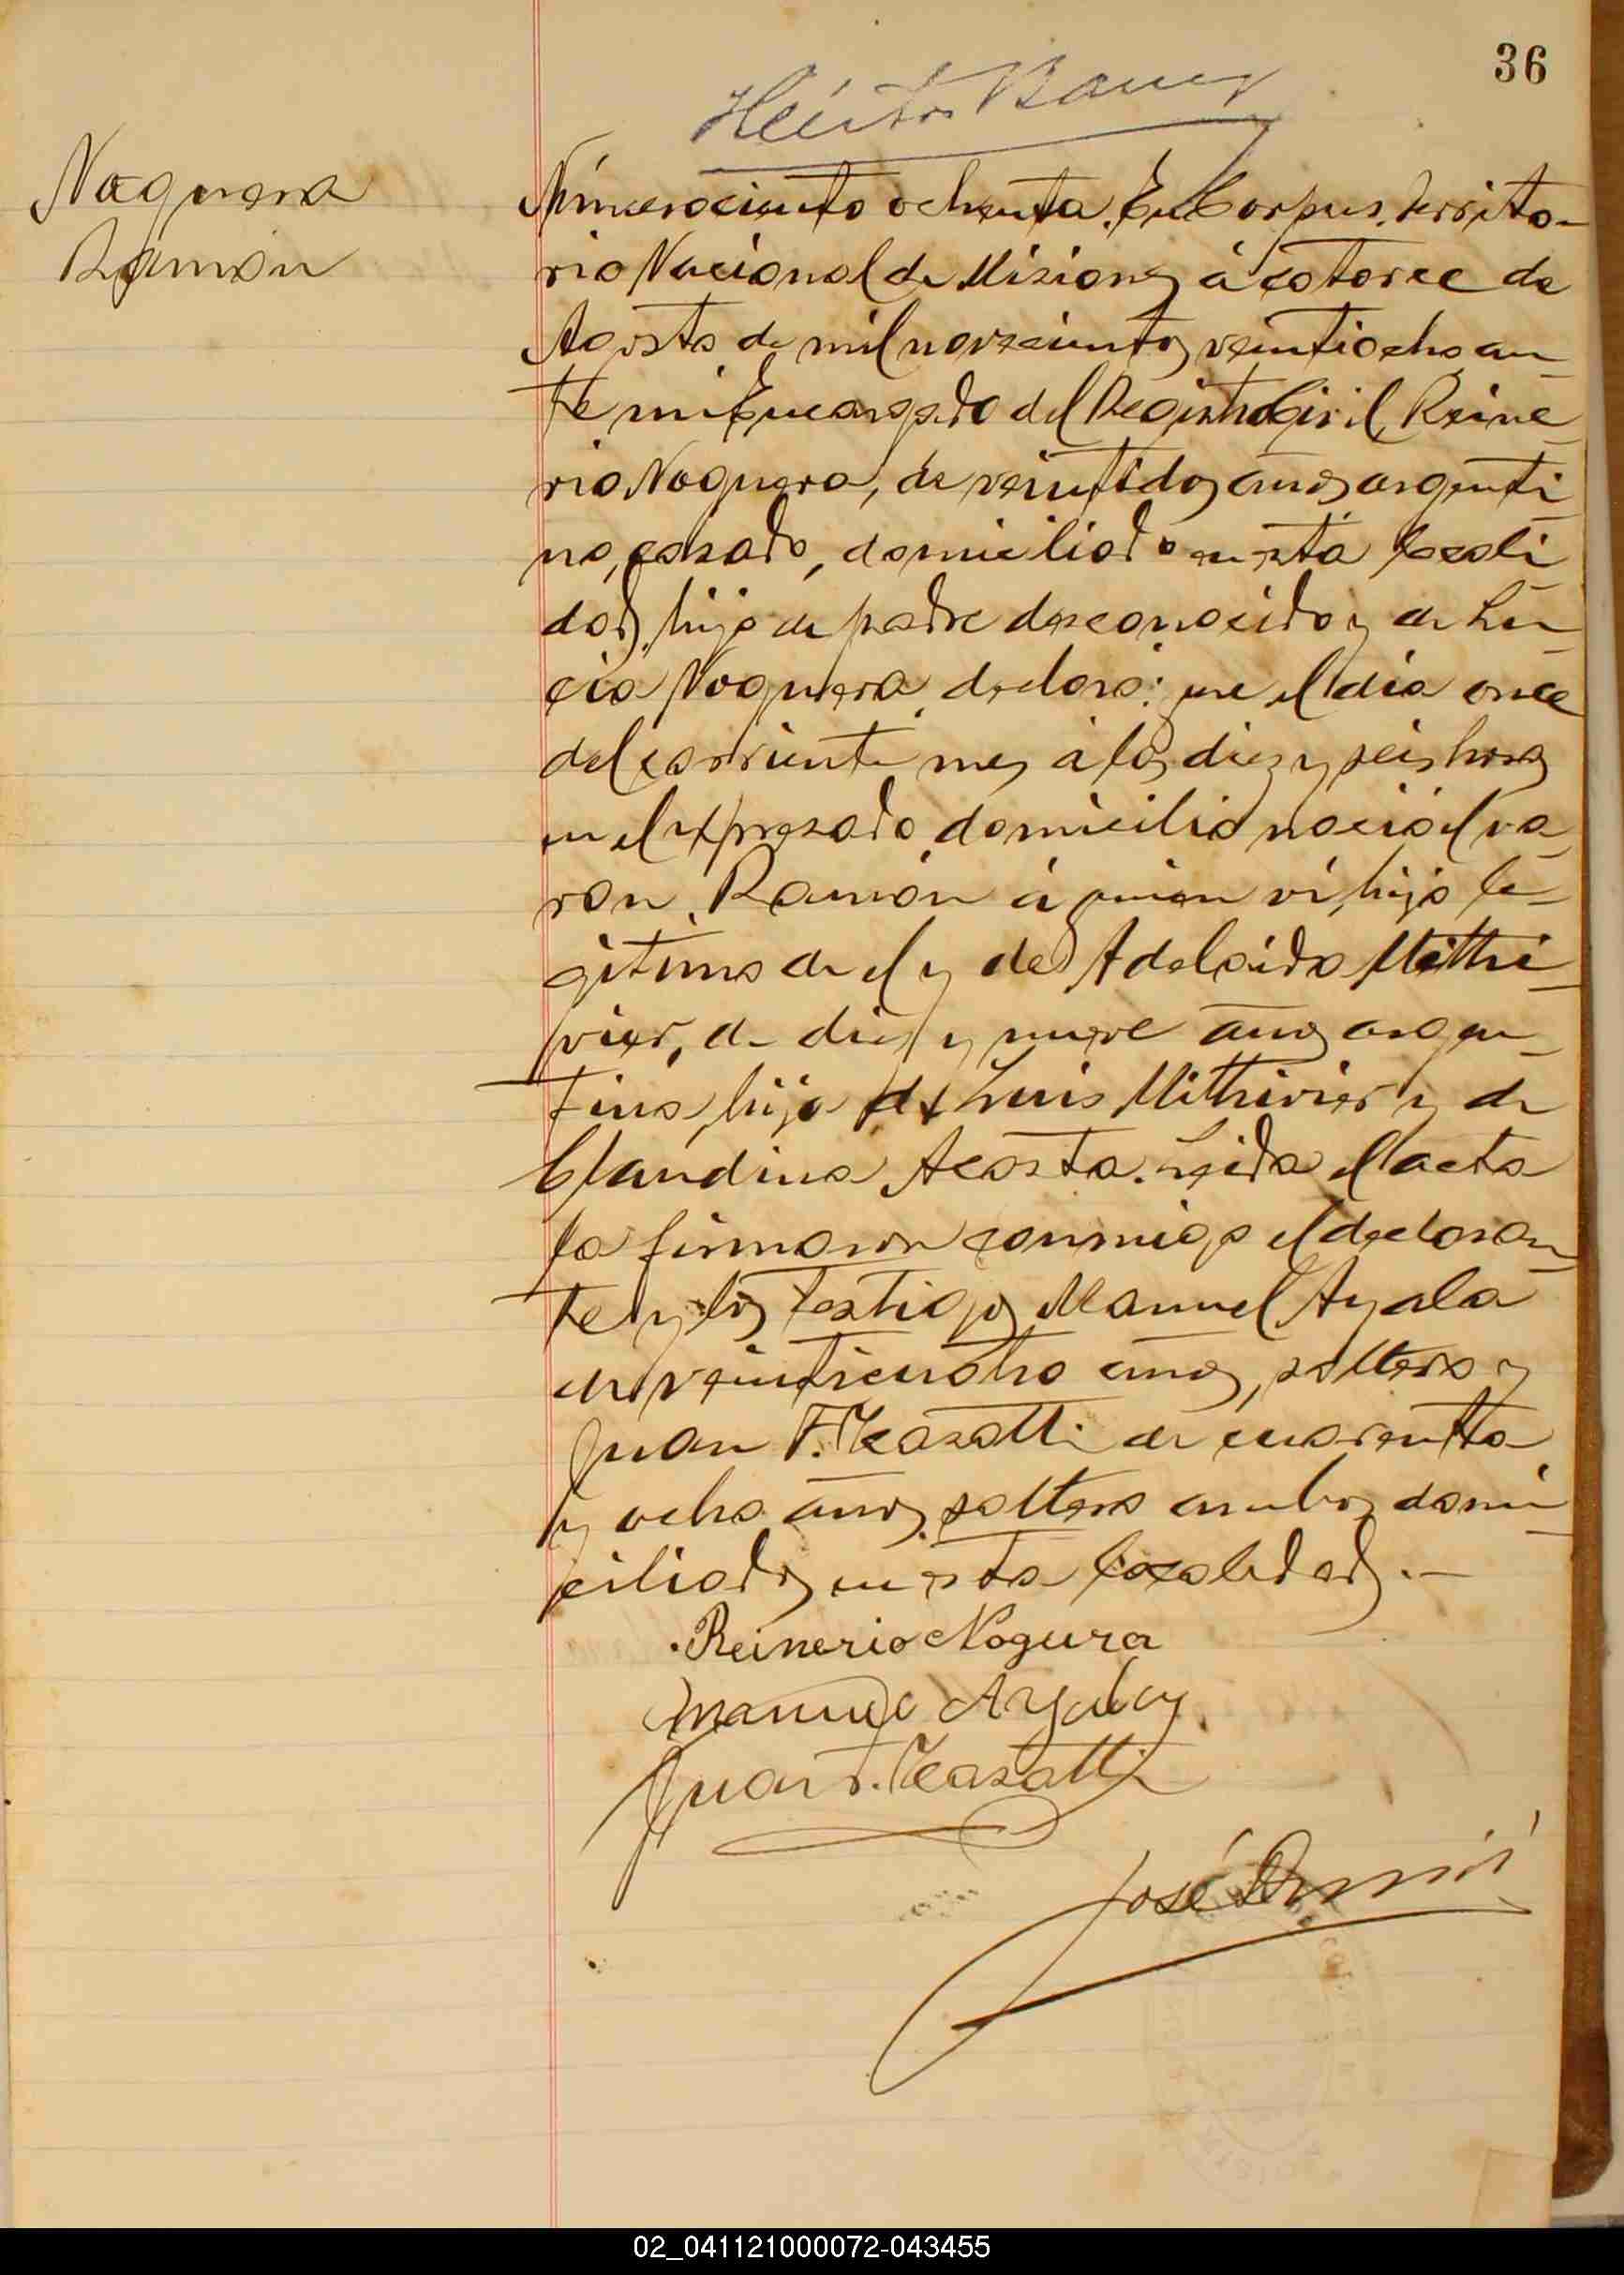 36
Héctor
Noguera
Ramón
Número ciento ochenta. En Corpus, Territo-
rio Nacional de Misiones á catorce de
Agosto de mil novecientos veintiocho an-
te mi Encargado del Registro Civil, Reine-
rio Noguera, de veintidos años argenti-
no, casado, domiciliado en esta locali-
dad, hijo de padre desconocido y de Lu-
cia Noguera, declara: que el dia once
del corriente mes á las diez y seis horas
en el expresado domicilio nació el va-
ron, Ramón á quien ví, hijo le-
gitimo de el y de Adelaida Mithi-
vier, de diez y nueve años argen-
tina, hija de Luis Mithivier y de
Claudina Acosta. Leida el acta
la firmaron conmigo el declaran-
te y los testigos Manuel Ayala
de veinticuatro años, soltero y
Juan F. Casatti de cuarenta
y ocho años, soltero ambos domi-
ciliados en esta localidad.—
Reinerio Nogura
Manuel Ayala
Juan F. Casatti
José
02_041121000072-043455